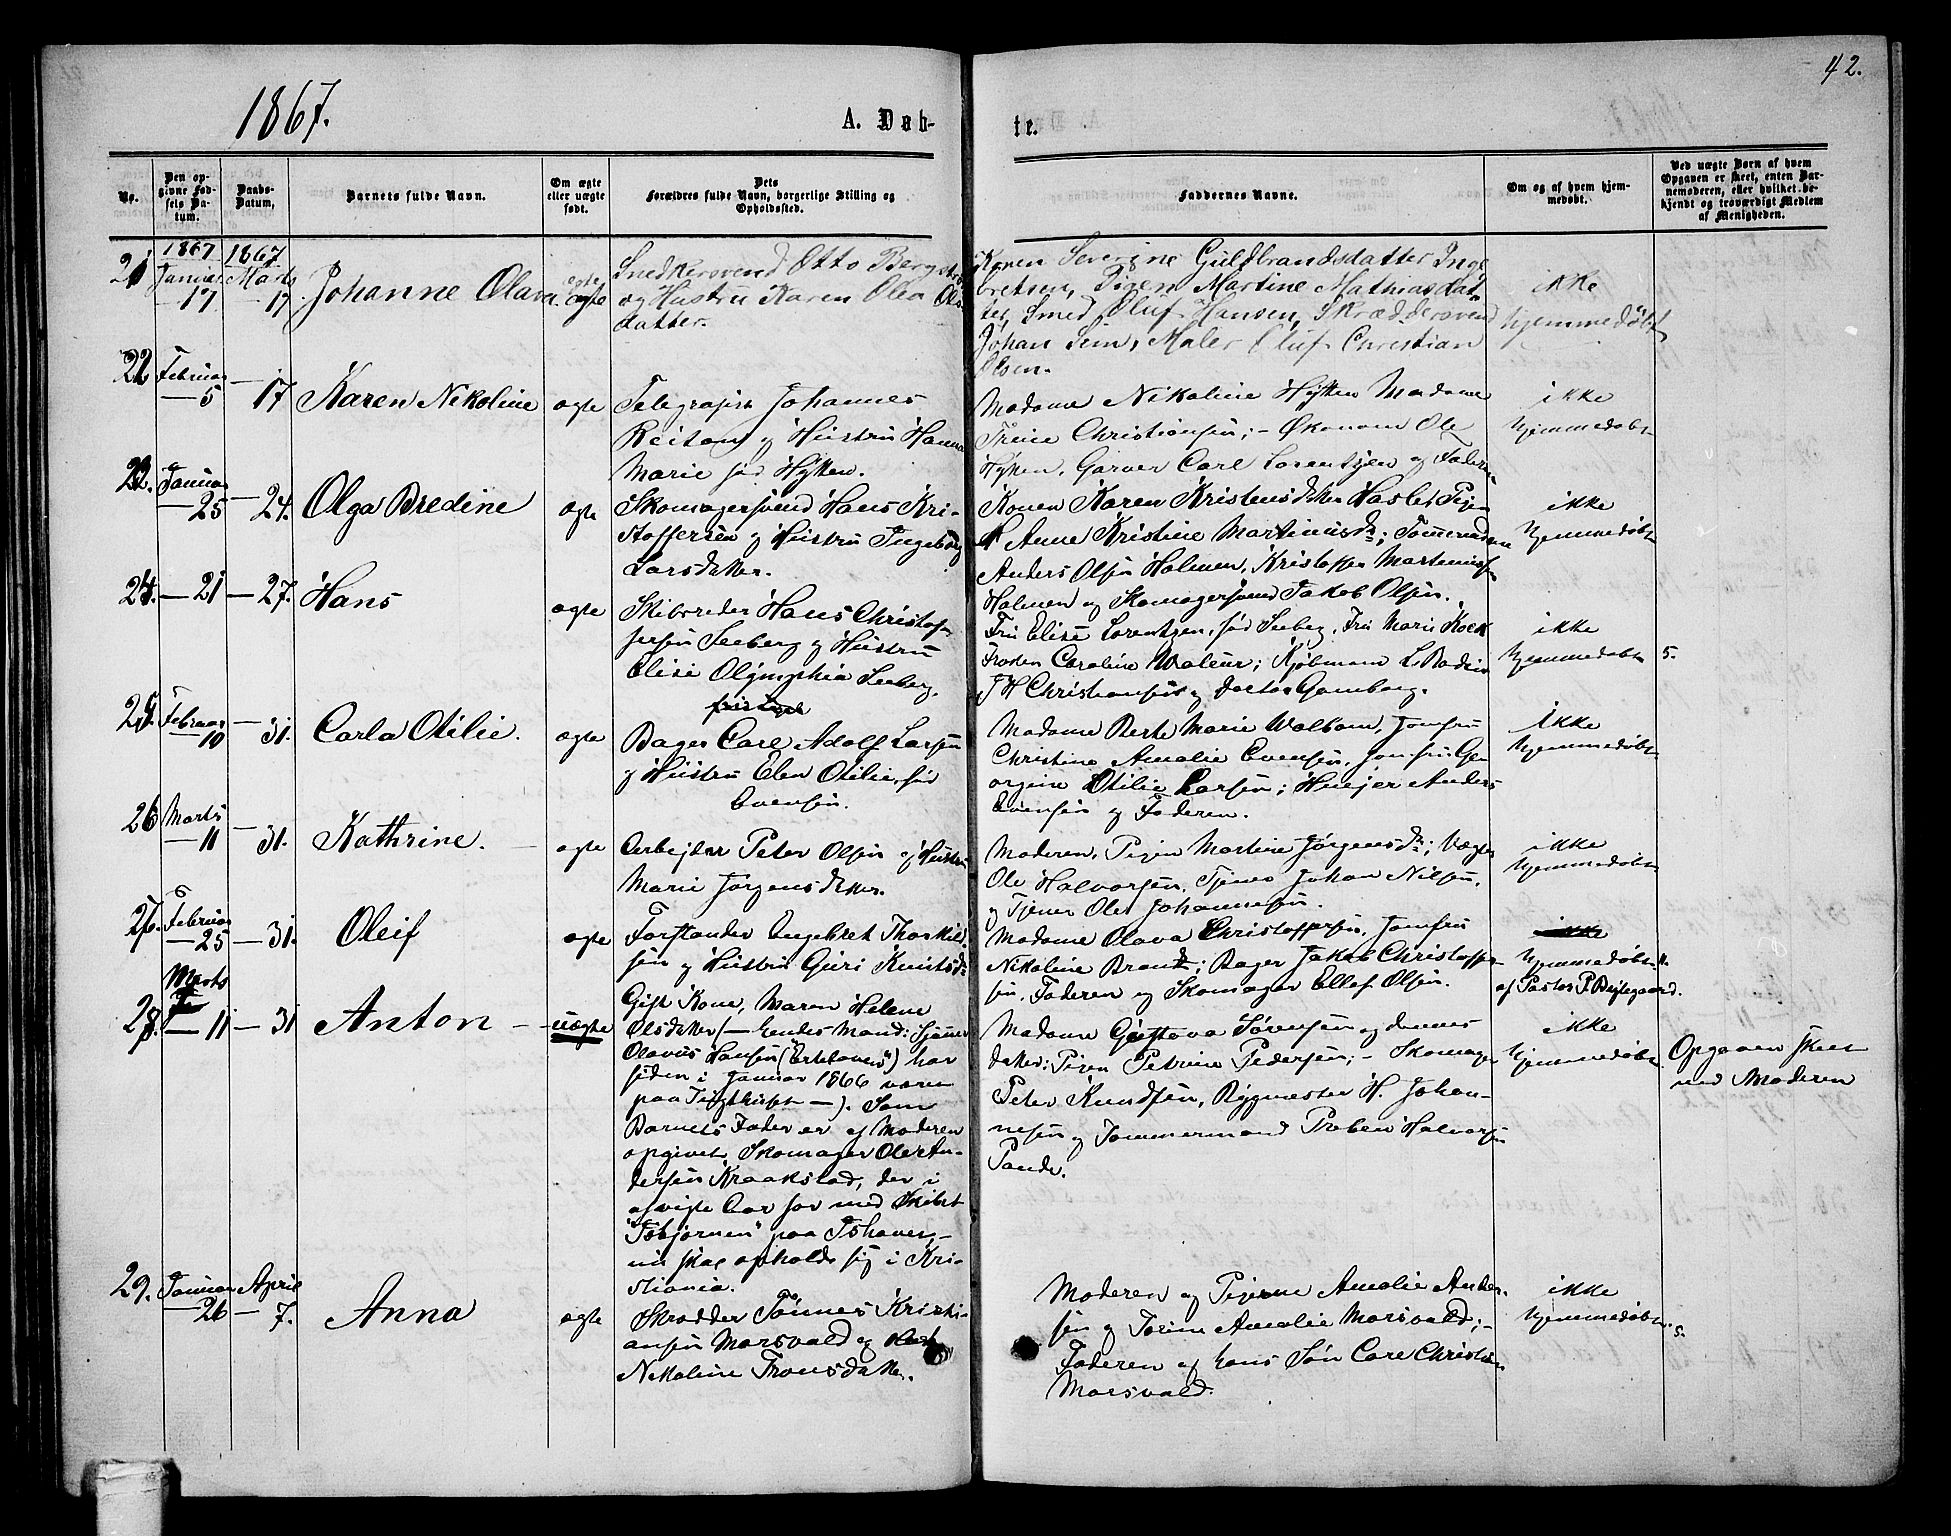 42.
1867.
A. Døb-
te.
No.
Den op-
givne Fød-
sels Da-
tum.
Daabs-
Datum,
Barnets fulde Navn.
Om ægte
eller uægte
født.
Dets
Forældres fulde Navn, borgerlige Stilling og
Opholdssted.
Faddernes Navne.
Om og af hvem hjem-
medøbt.
Ved uægte Børn af hvem
Opgaven er skeet, enten Bar-
nemoderen, eller hvilket be-
kjendt og troværdigt Medlem
af Menigheden.
1867 1867
21 Januar 17 Marts 17 Johanne Olava. ægte
ægte
Snedkersvend Otto Bergstrøm
og Hustru Karen Olea Ols-
datter.
Konen Severine Guldbrandsdatter Inge
bretsen, Pigen Martine Mathiasdat
ter, Smed Oluf Hansen, Skræddersvend
Johan Sem, Maler Oluf Christian
Olsen.
ikke
hjemmedøbt
22 Februar 5 – 17 Karen Nikoline ægte
Telegrafist Johannes
Reitan og Hustru Hanna
Marie fød Hytten.
Madame Nikoline Hytten Madame
Trine Christiansen; – Økonom Ole
Hytten, Garver Carl Lorentzen og Faderen
ikke
hjemmedøbt
23. Januar 25 – 24. Olga Bredine ægte
Skomagersvend Hans Kri-
stoffersen og Hustru Ingeborg
Larsdatter.
Konen Karen Kristensdatter Hasle, Pigen
Anne Kristine Martinusdr; Tømmermændene
Anders Olsen Holmen, Kristoffer Martinussen
Holmen og Skomagersvend Jakob Olsen.
ikke
hjemmedøbt
24. – 21 – 27. Hans ægte
Skibsreder Hans Christof-
fersen Seeberg og Hustru
Elise Olymphia Seeberg.
Fru Elise Lorentzen, fød Seeberg, Fru Marie Kock
Frøken Caroline Waleur; Kjøbmann L. Bodin
J H Christiansen og Doctor Gamborg.
ikke
hjemmedøbt
5.
25. Februar 10 – 31. Carla Otilie. ægte
Bager Carl Adolf Larsen
og Hustru Elen Otilie, fød
Evensen.
Madame Berte Marie Walbom, Jomfru
Christine Amalie Evensen, Jomfru Ge-
orgine Otilie Larsen; Anders
Evensen og Faderen.
ikke
hjemmedøbt
26 Marts 11 – 31. Kathrine. ægte
Arbejder Peter Olsen og Hustru
Marie Jørgensdatter.
Moderen, Pigen Martine Jørgensdr; Vægter
Ole Halvorsen, Tjener Johan Nilsen,
og Tjener Ole Johannesen.
ikke
hjemmedøbt
27. Februar 25 – 31. Oleif ægte
Forstander Engebret Thorkild-
sen og Hustru Guri Knutsdr
Madame Olava Christoffersen, Jomfru
Nikoline Brandt; Bager Jakob Christoffer-
sen, Faderen og Skomager Ellef Olsen.
ikke
hjemmedøbt
af Pastor P. Bejlegaard.
28. Marts 11 – 31 Anton – uægte
Gift Kone, Maren Helene
Olsdatter (– hendes Mand: Sjømand
Olavus Hansen ("Erteloven") har
siden i Januar 1866 været
paa Tugthuset –). Som
Barnets Fader er af Moderen
opgivet Skomager Ole An-
dersen Kraakstad, der i
afvigte Aar for med Skibet
"Isbjørnen" paa Ishavet,
nu skal opholde sig i Kri-
stiania.
Madame Gustava Sørensen og dennes
datter; Pigen Petrine Pedersen; – Skomager
Peter Knudsen, Rygmester H. Johan-
nesen og Tømmermand Preben Halvorsen
Pande.
ikke
hjemmedøbt
Opgaven skeet
ved Moderen
29. Januar 26 April 7. Anna ægte
Skrædder Tønnes Kristi-
ansen Morsvald og
Nikoline Tronsdatter.
Moderen og Pigerne Amalie Ander-
sen og Torine Amalie Morsvald; –
Faderen og hans Søn Carl Christian
Morsvald.
ikke
hjemmedøbt.
5.